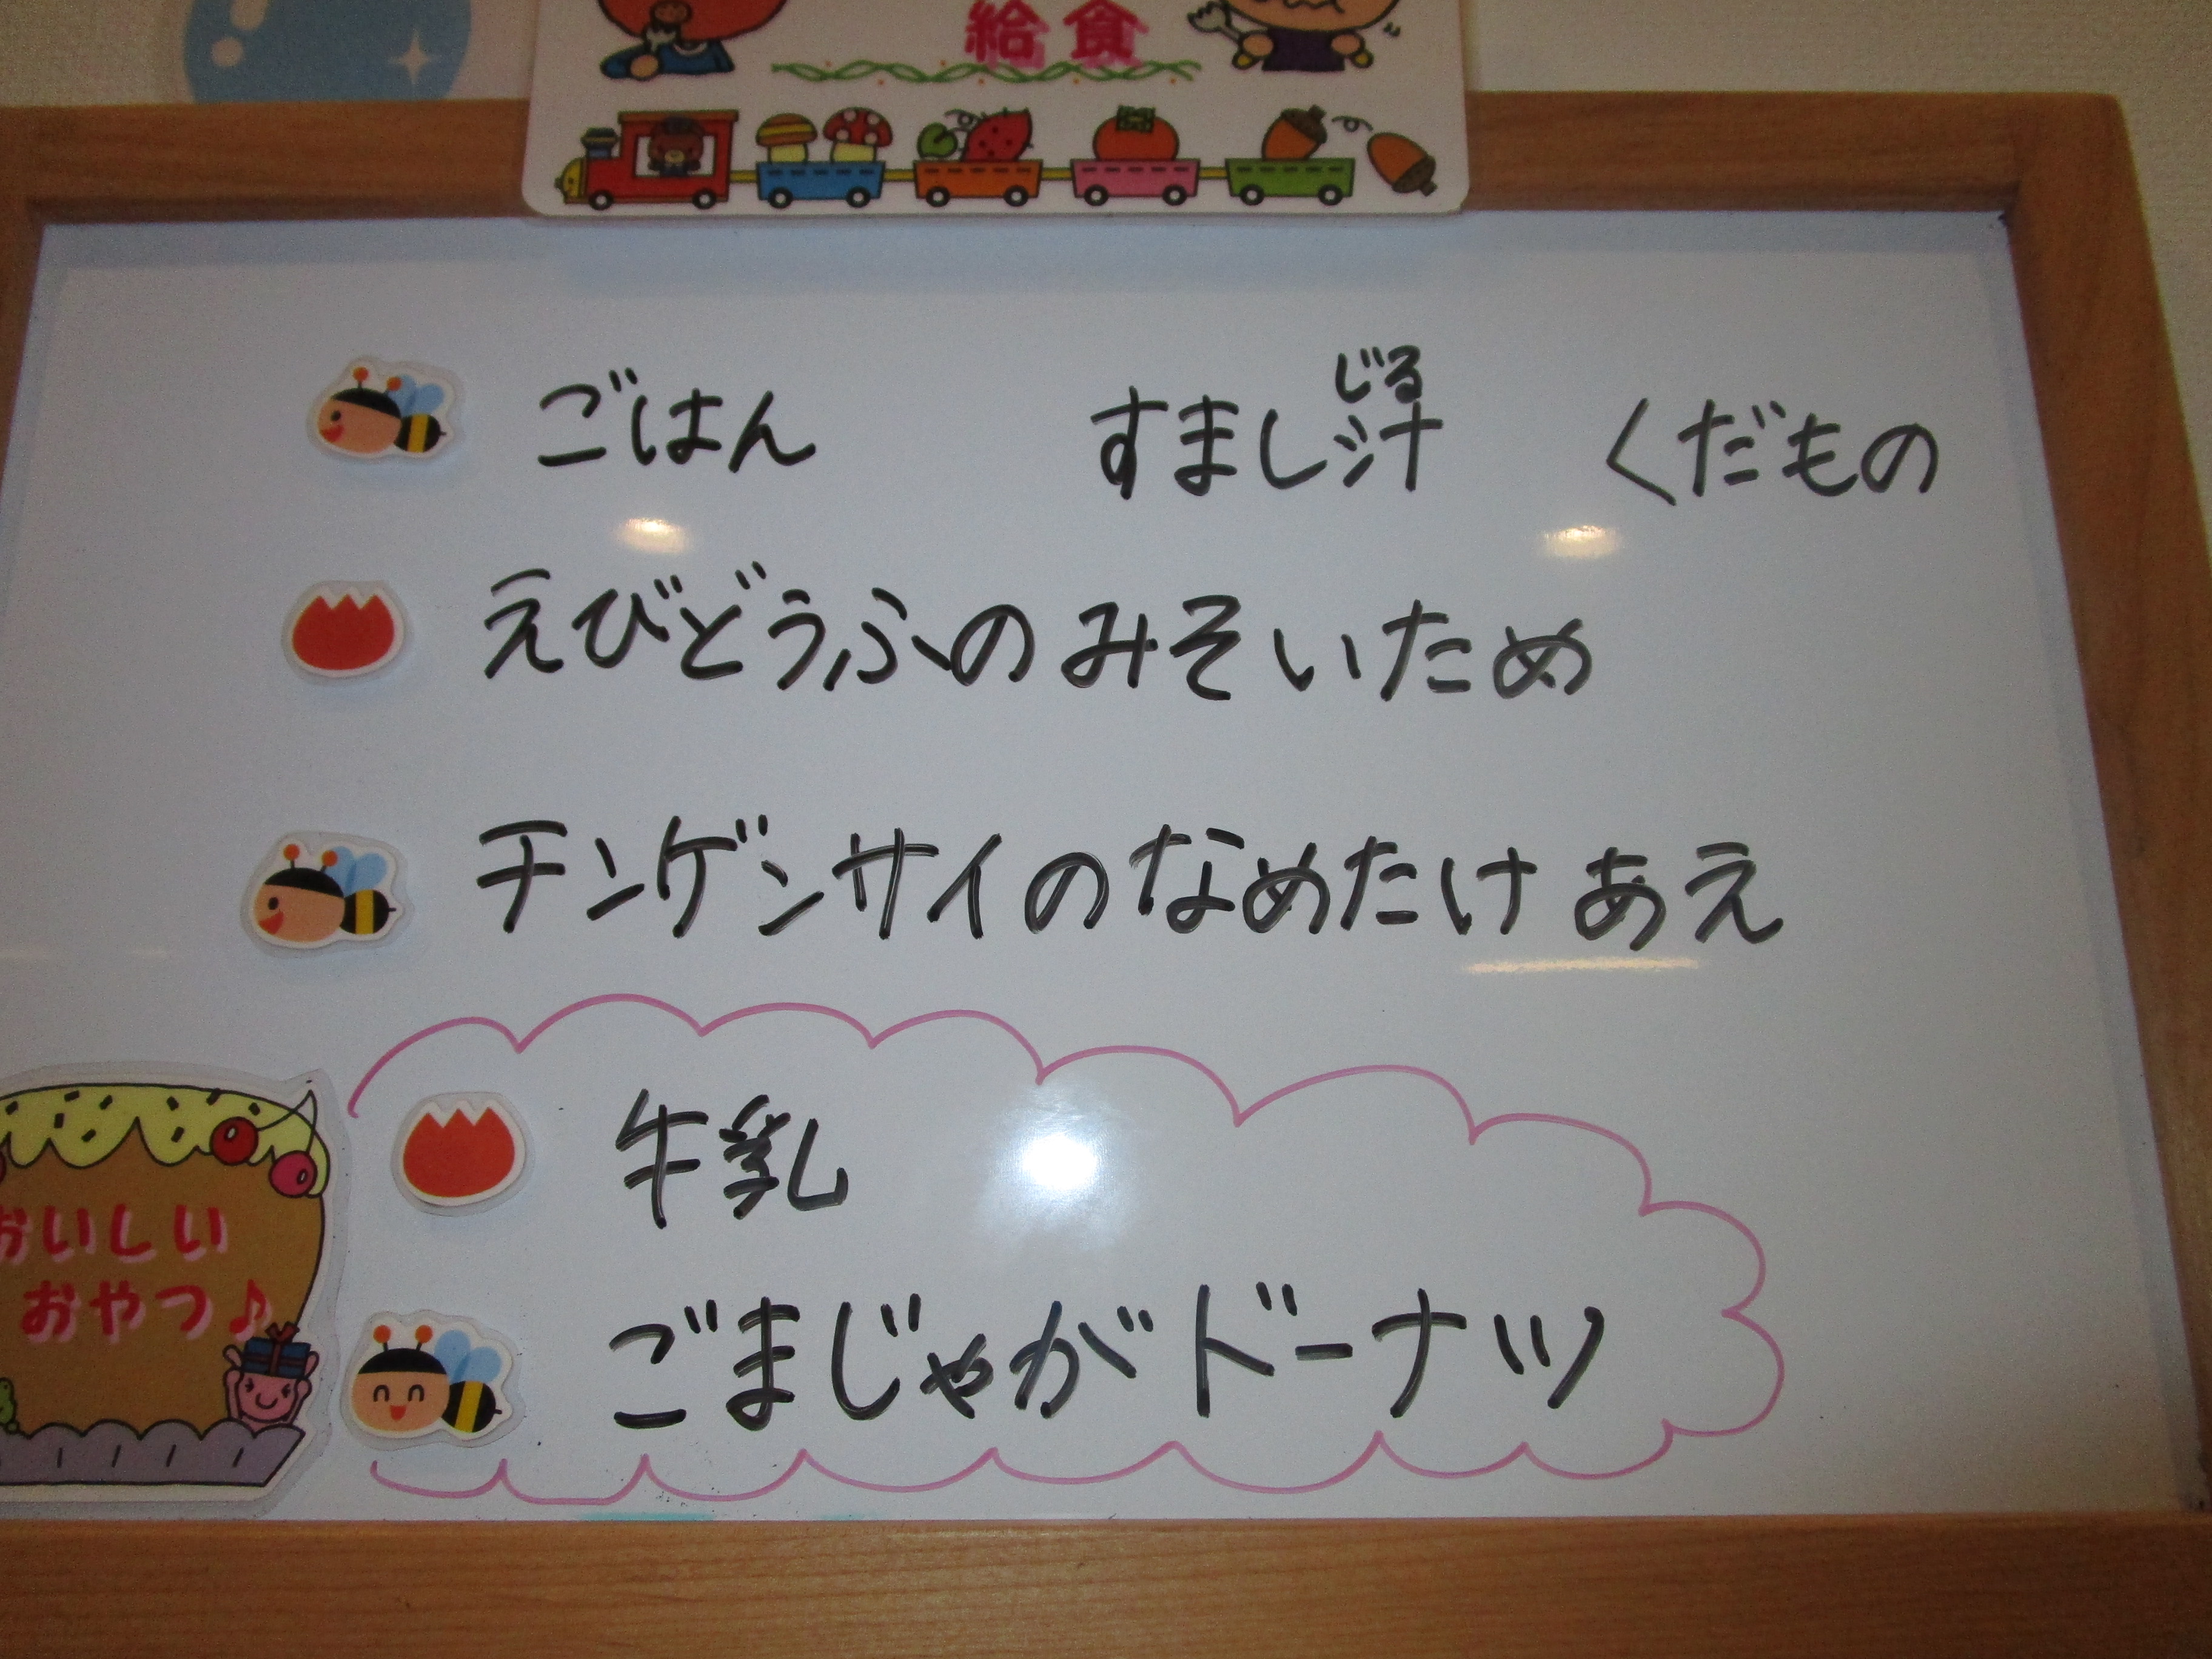 給食
ごはん すまし汁 くだもの
じる
えびどうふのみそいため
チンゲンサイのなめたけあえ
牛乳
ごまじゃがドーナツ
おいしい
おやつ♪